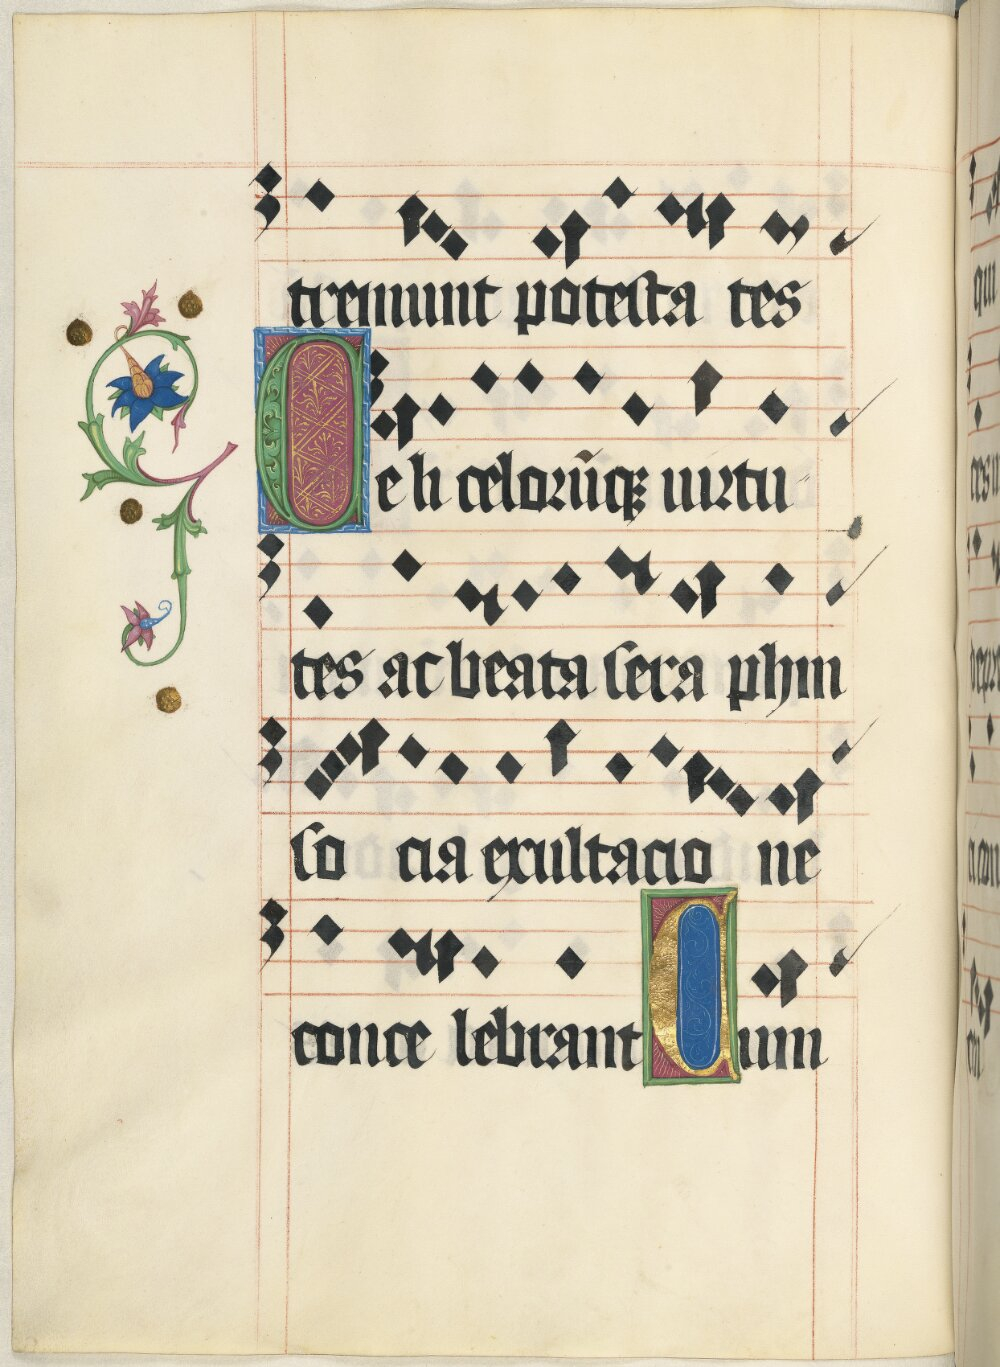 tremunt potesta tes
Ce li celorūq₃ uirtu
tes ac beata sera phin
so cia exultacio ne
conce lebrant Cum